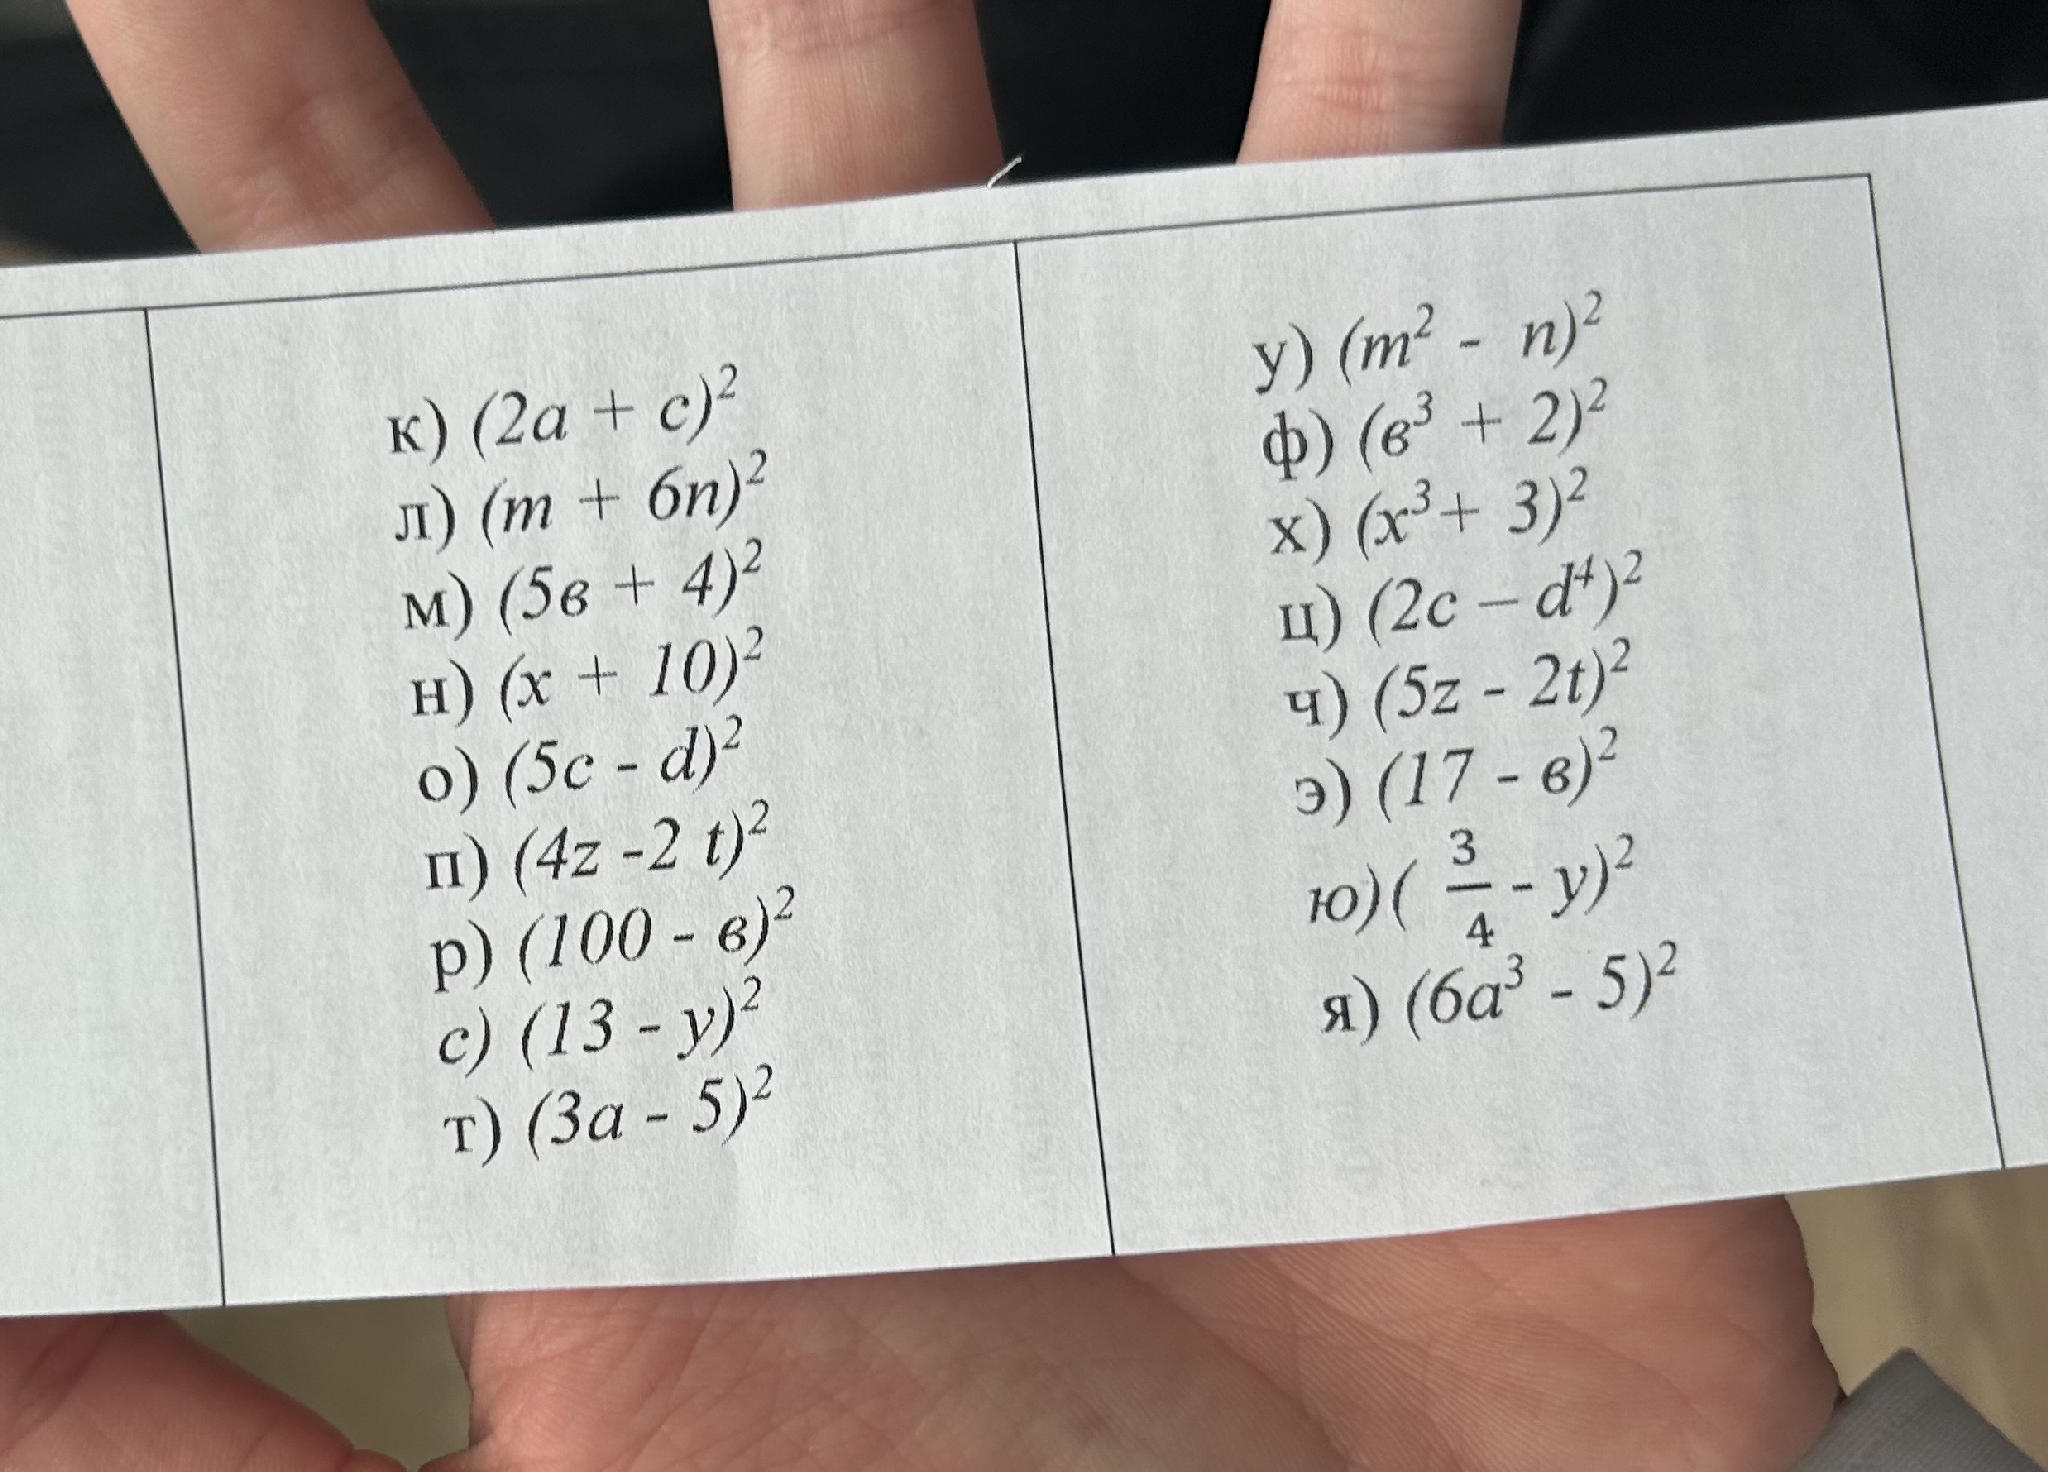 к) (2a + c)²
л) (m + 6n)²
м) (5в + 4)²
н) (x + 10)²
о) (5c - d)²
п) (4z -2 t)²
р) (100 - в)²
с) (13 - y)²
т) (3a - 5)²
у) (m² - n)²
ф) (в³ + 2)²
х) (x³+ 3)²
ц) (2c – d⁴)²
ч) (5z - 2t)²
э) (17 - в)²
ю)( 3/4 - y)²
я) (6a³ - 5)²